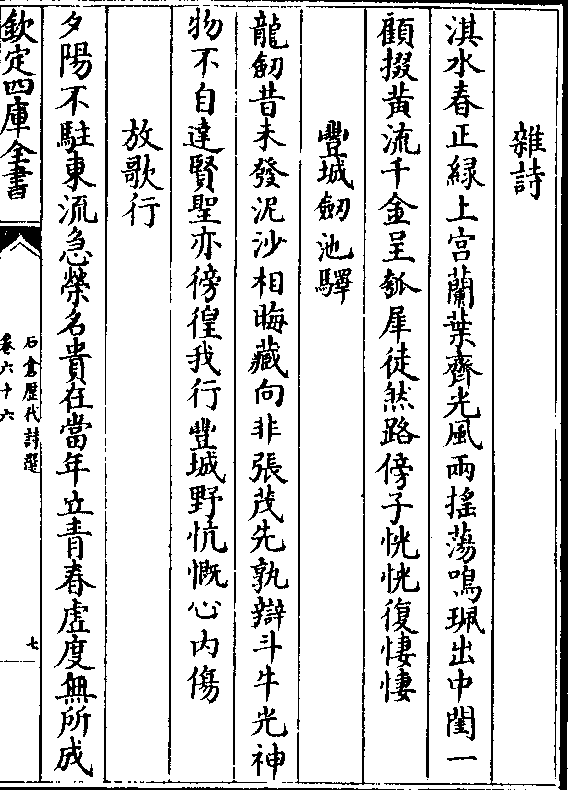 雜詩
淇水春正緑上宫蘭葉齊光風兩搖蕩鳴珮出中閨一
顧掇黃流千金呈瓠犀徒然路傍子恍恍復悽悽
豐城劒池驛
龍劒昔未發泥沙相晦藏向非張茂先孰辯斗牛光神
物不自達賢聖亦徬徨我行豐城野慷慨心内傷
放歌行
夕陽不駐東流急榮名貴在當年立青春虛度無所成
欽定四庫全書
石倉歷代詩選
卷六十六
七